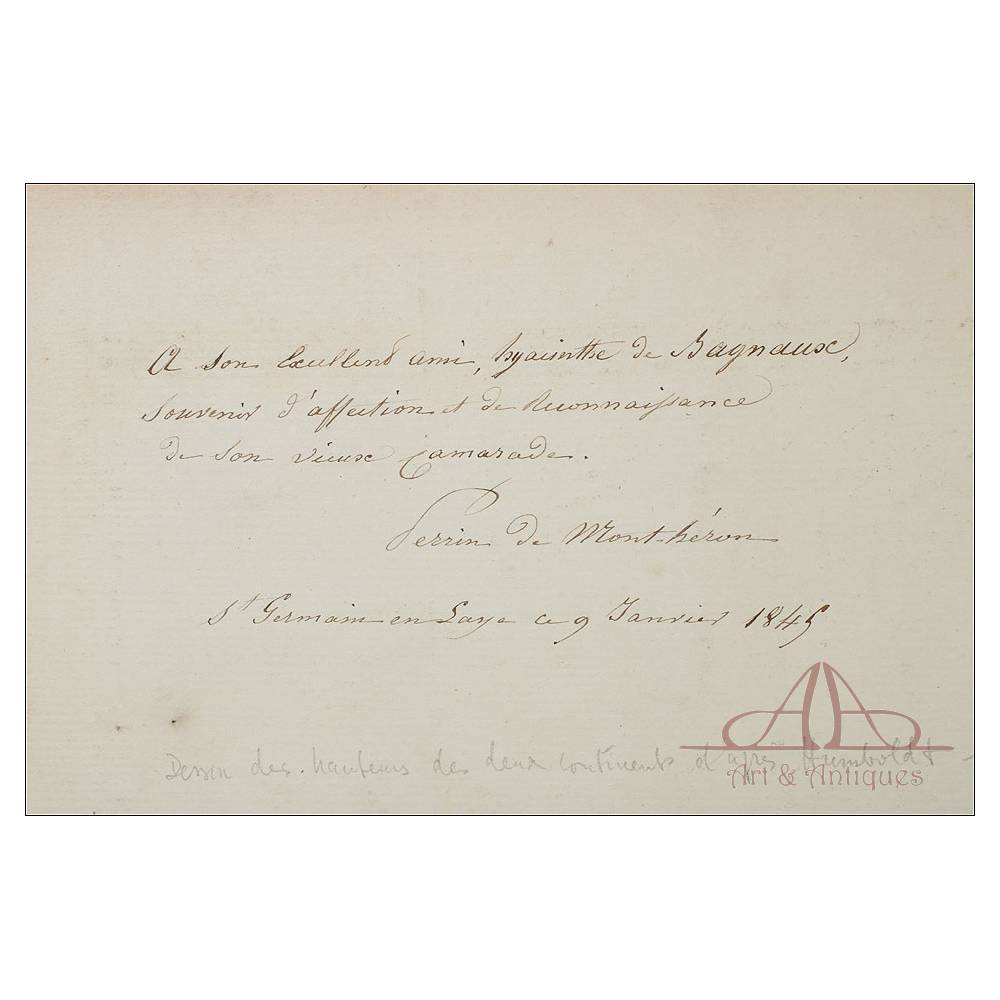 A son Excellent ami, hyacinthe de Bagneaux,
Souvenir d'affection et de Reconnaissance
de son vieux Camarade.
Perrin de Mont-héron
St Germain en Laye ce 9 Janvier 1845
Dessin des hauteurs des deux continents d'après Humboldt
Art & Antiques